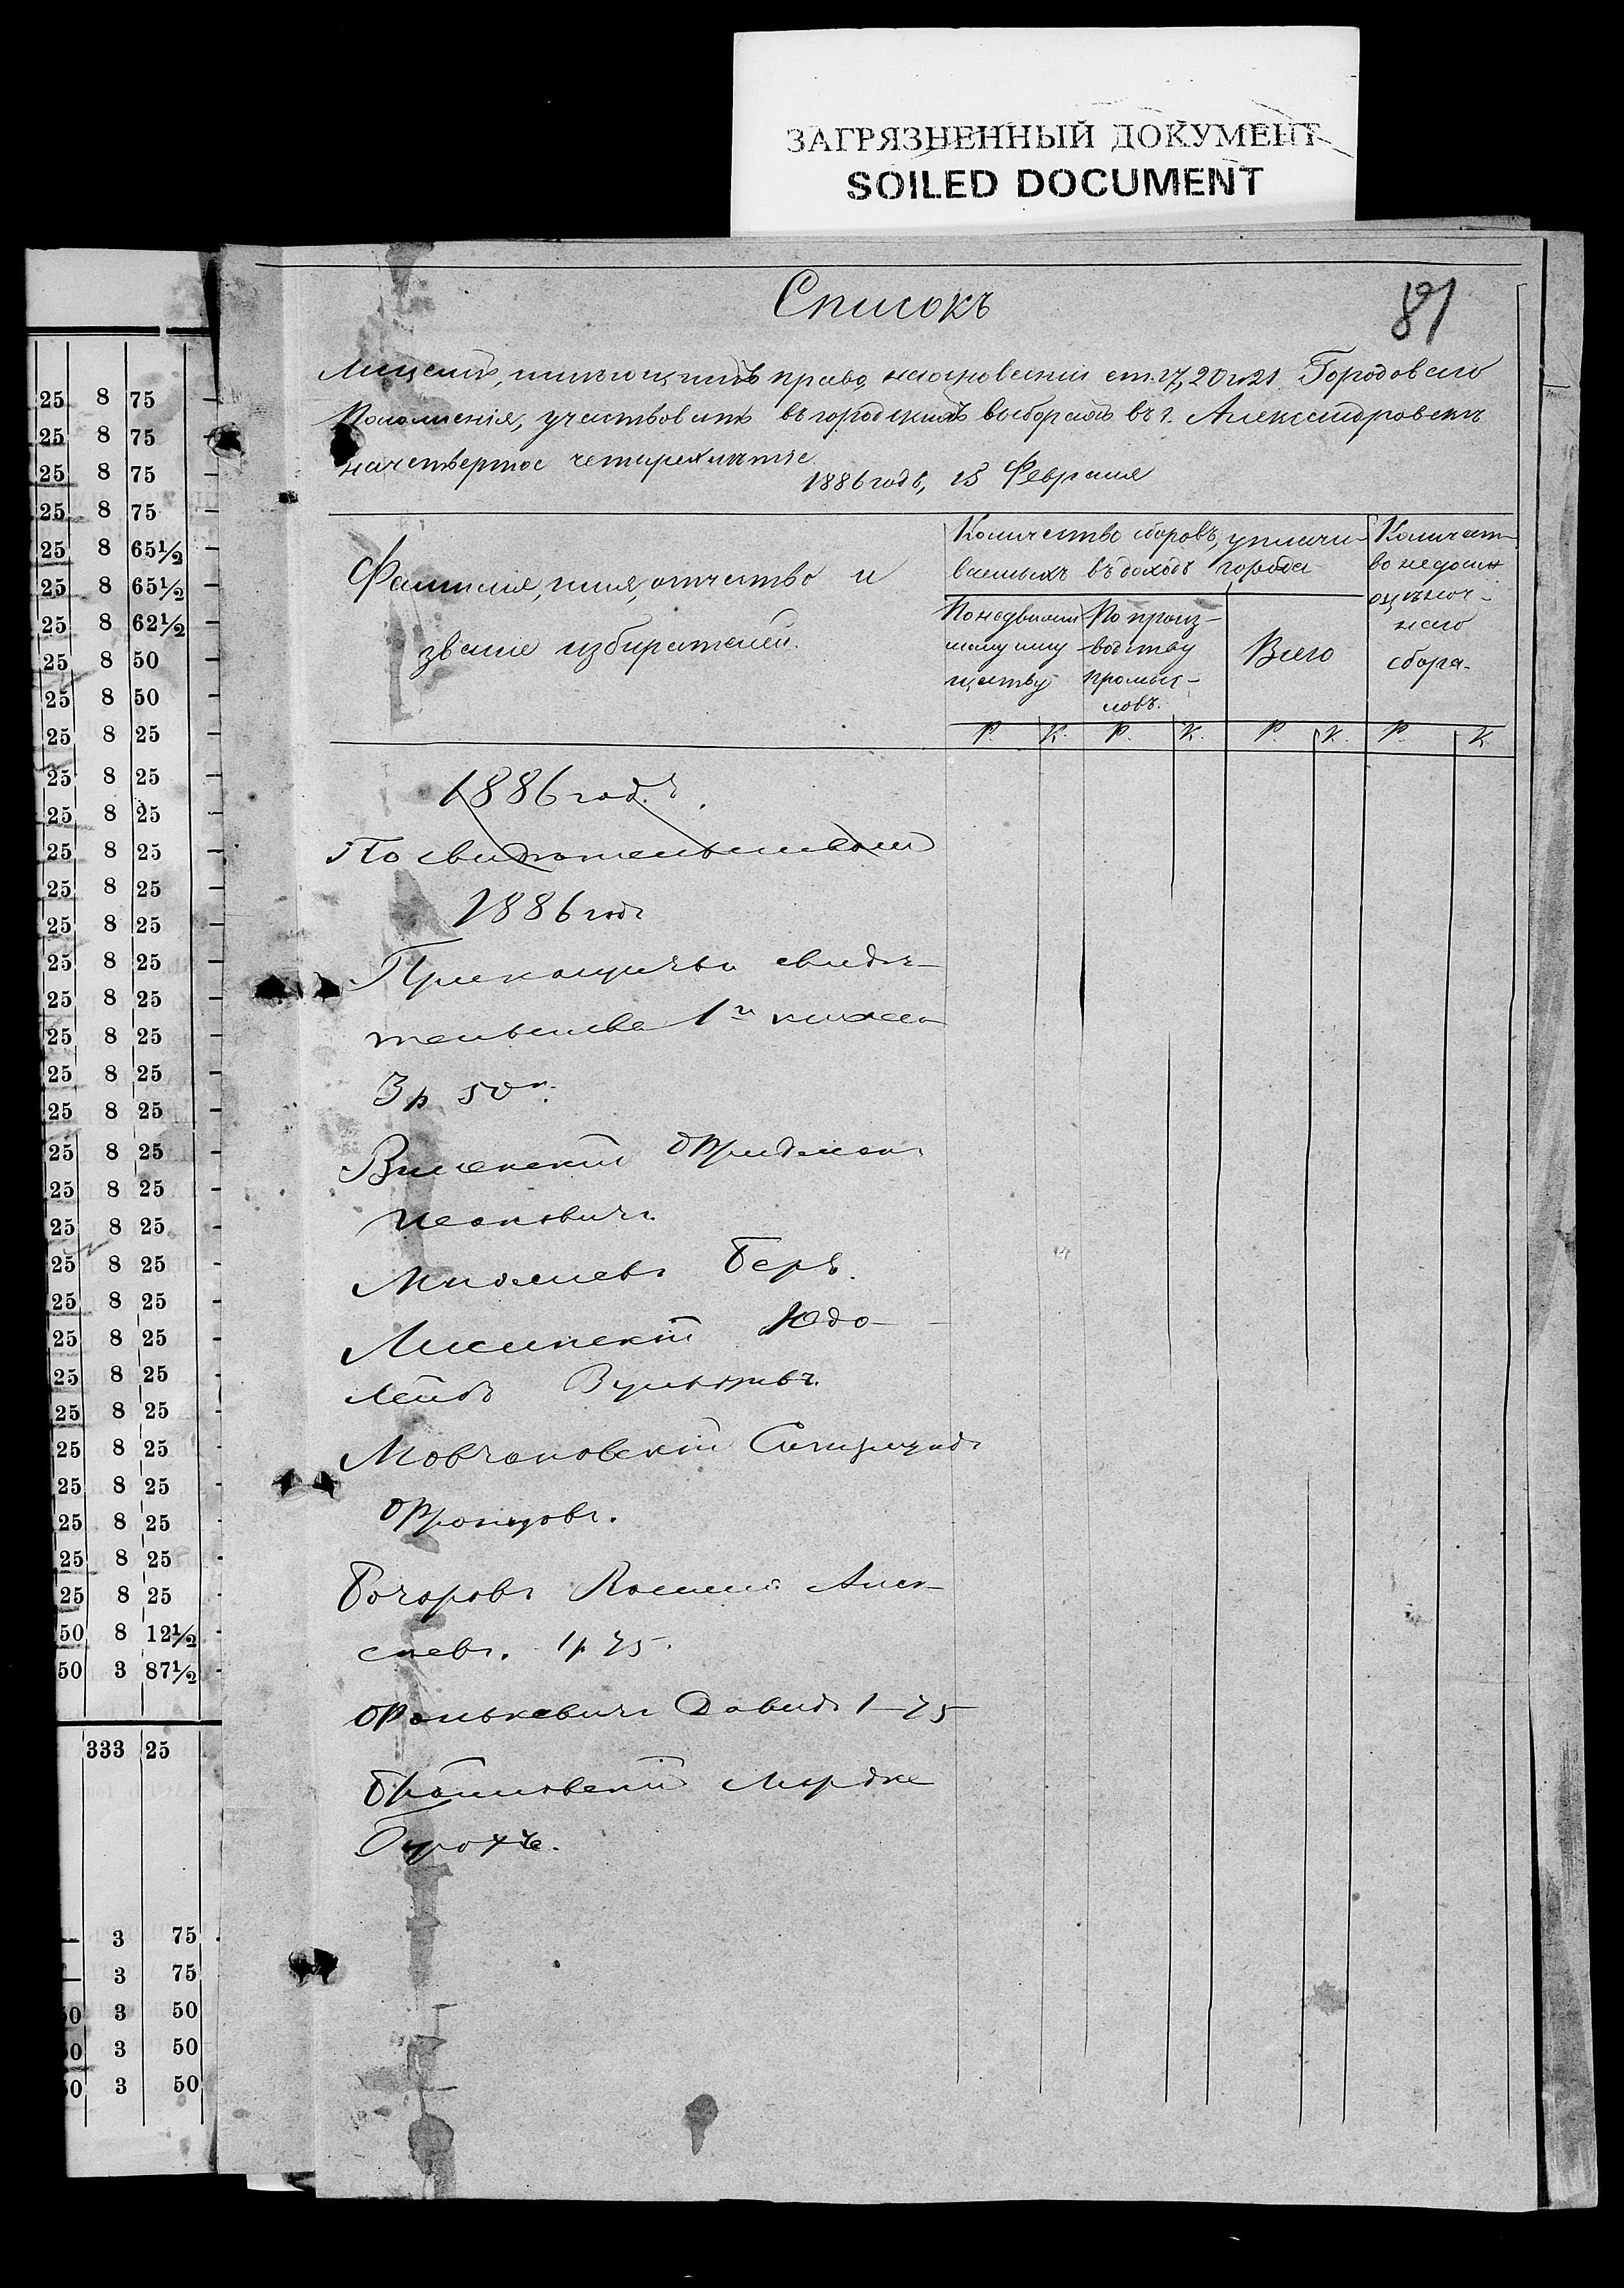 ЗАГРЯЗНЕННЫЙ ДОКУМЕНТ
SOILED DOCUMENT
81
Списокъ
лицамъ, имѣющимъ право, на основаніи ст. 17, 20 и 21 Городоваго
Положенія, участвовать въ городскихъ выборахъ въ г. Александровскѣ
на четвертое четырехлѣтіе
1886 годъ, 15 Февраля
Фамилія, имя, отчество и
званіе избирателей.
Количество сборовъ, уплачи-
ваемыхъ въ доходъ города
По недвижи-
мому иму-
ществу
По произ-
водству
промыс-
ловъ.
Всего
Количест-
во недоим
оцѣноч-
наго
сбора.
Р. К. Р. К. Р. К. Р. К
1886 годъ.
По свидѣтельствамъ
1886 годъ
Прикащичьи свидѣ-
тельства 1го класса
3 р 50 к.
Виленскій Фридман
Беръ.
Юдо-
Лейбъ Вульфовъ.
Мовчановскій Сигизмундъ
Францовъ.
Бочаровъ Алек-
сѣевъ. 1 р 75.
Фалькевичъ Давидъ 1-75
25 8 75
25 8 75
25 8 75
25 8 75
25 8 65½
25 8 65½
25 8 62½
25 8 50
25 8 50
25 8 25
25 8 25
25 8 25
25 8 25
25 8 25
25 8 25
25 8 25
25 8 25
25 8 25
25 8 25
25 8 25
25 8 25
25 8 25
25 8 25
25 8 25
25 8 25
25 8 25
25 8 25
25 8 25
25 8 25
25 8 25
25 8 25
25 8 25
25 8 25
50 8 12½
50 3 87½
333 25
— 3 75
— 3 75
50 3 50
50 3 50
50 3 50